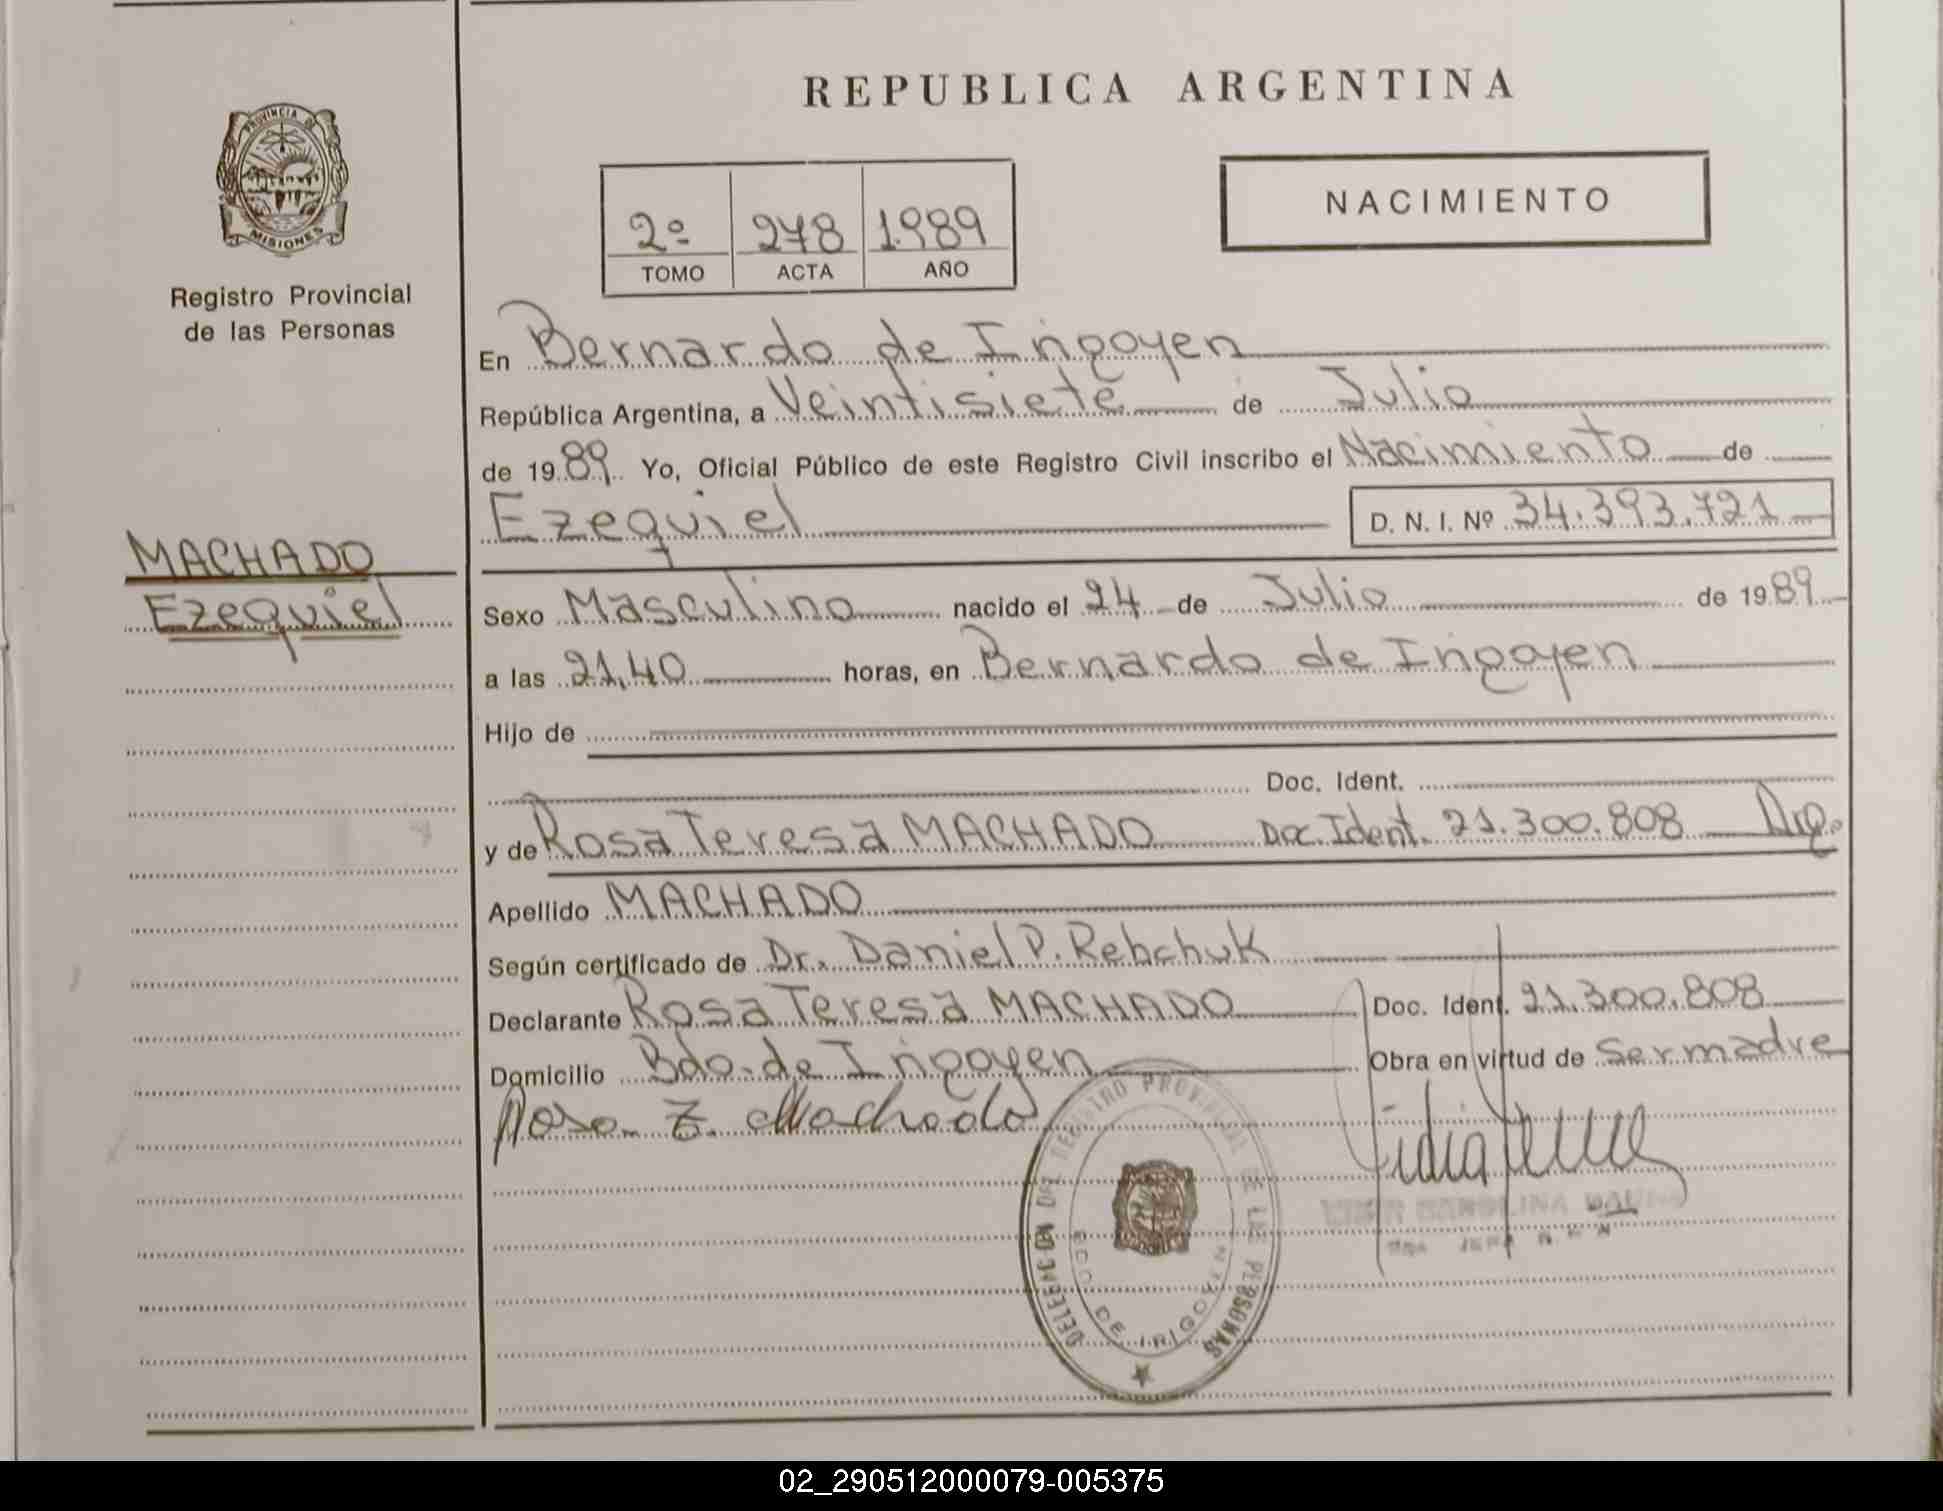 REPUBLICA ARGENTINA
PROVINCIA DE
MISIONES
Registro Provincial
de las Personas
NACIMIENTO
2º 278 1989
TOMO ACTA AÑO
En Bernardo de Irigoyen
República Argentina, a Veintisiete de Julio
de 1989 Yo, Oficial Público de este Registro Civil inscribo el Nacimiento de
Ezequiel D. N. I. Nº 34.393.721
MACHADO
Ezequiel
Sexo Masculino nacido el 24 de Julio de 1989
a las 21,40 horas, en Bernardo de Irigoyen
Hijo de
Doc. Ident.
y de Rosa Teresa MACHADO Doc. Ident. 21.300.808 Arg.
Apellido MACHADO
Según certificado de Dr. Daniel P. Rebchuk
Declarante Rosa Teresa MACHADO Doc. Ident. 21.300.808
Domicilio Bdo. de Irigoyen Obra en virtud de Ser madre
Rosa T. Machado
DELEGACION DEL REGISTRO PROVINCIAL DE LAS PERSONAS
BDO. DE IRIGOYEN
CAROLINA
02_290512000079-005375